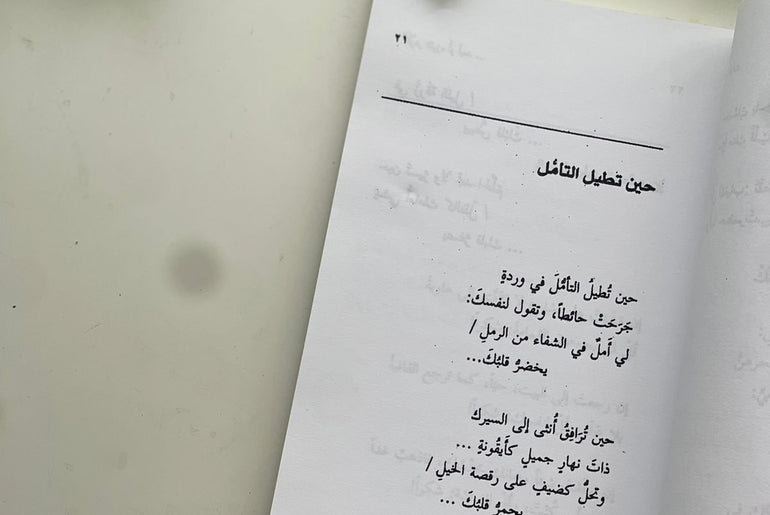 ٢١
حين تطيل التأمُل
حين تُطيلُ التأمُّلَ في وردةٍ
جَرَحَتْ حائطاً، وتقول لنفسكَ:
لي أَملٌ في الشفاء من الرملِ /
يخضرُّ قلبُكَ...
حين تُرَافِقُ أُنثى إلى السيرك
ذاتَ نهارٍ جميلٍ كأَيقُونةٍ ...
وتحلُّ كضيفٍ على رقصة الخيلِ /
يحمرُّ قلبُكَ ...